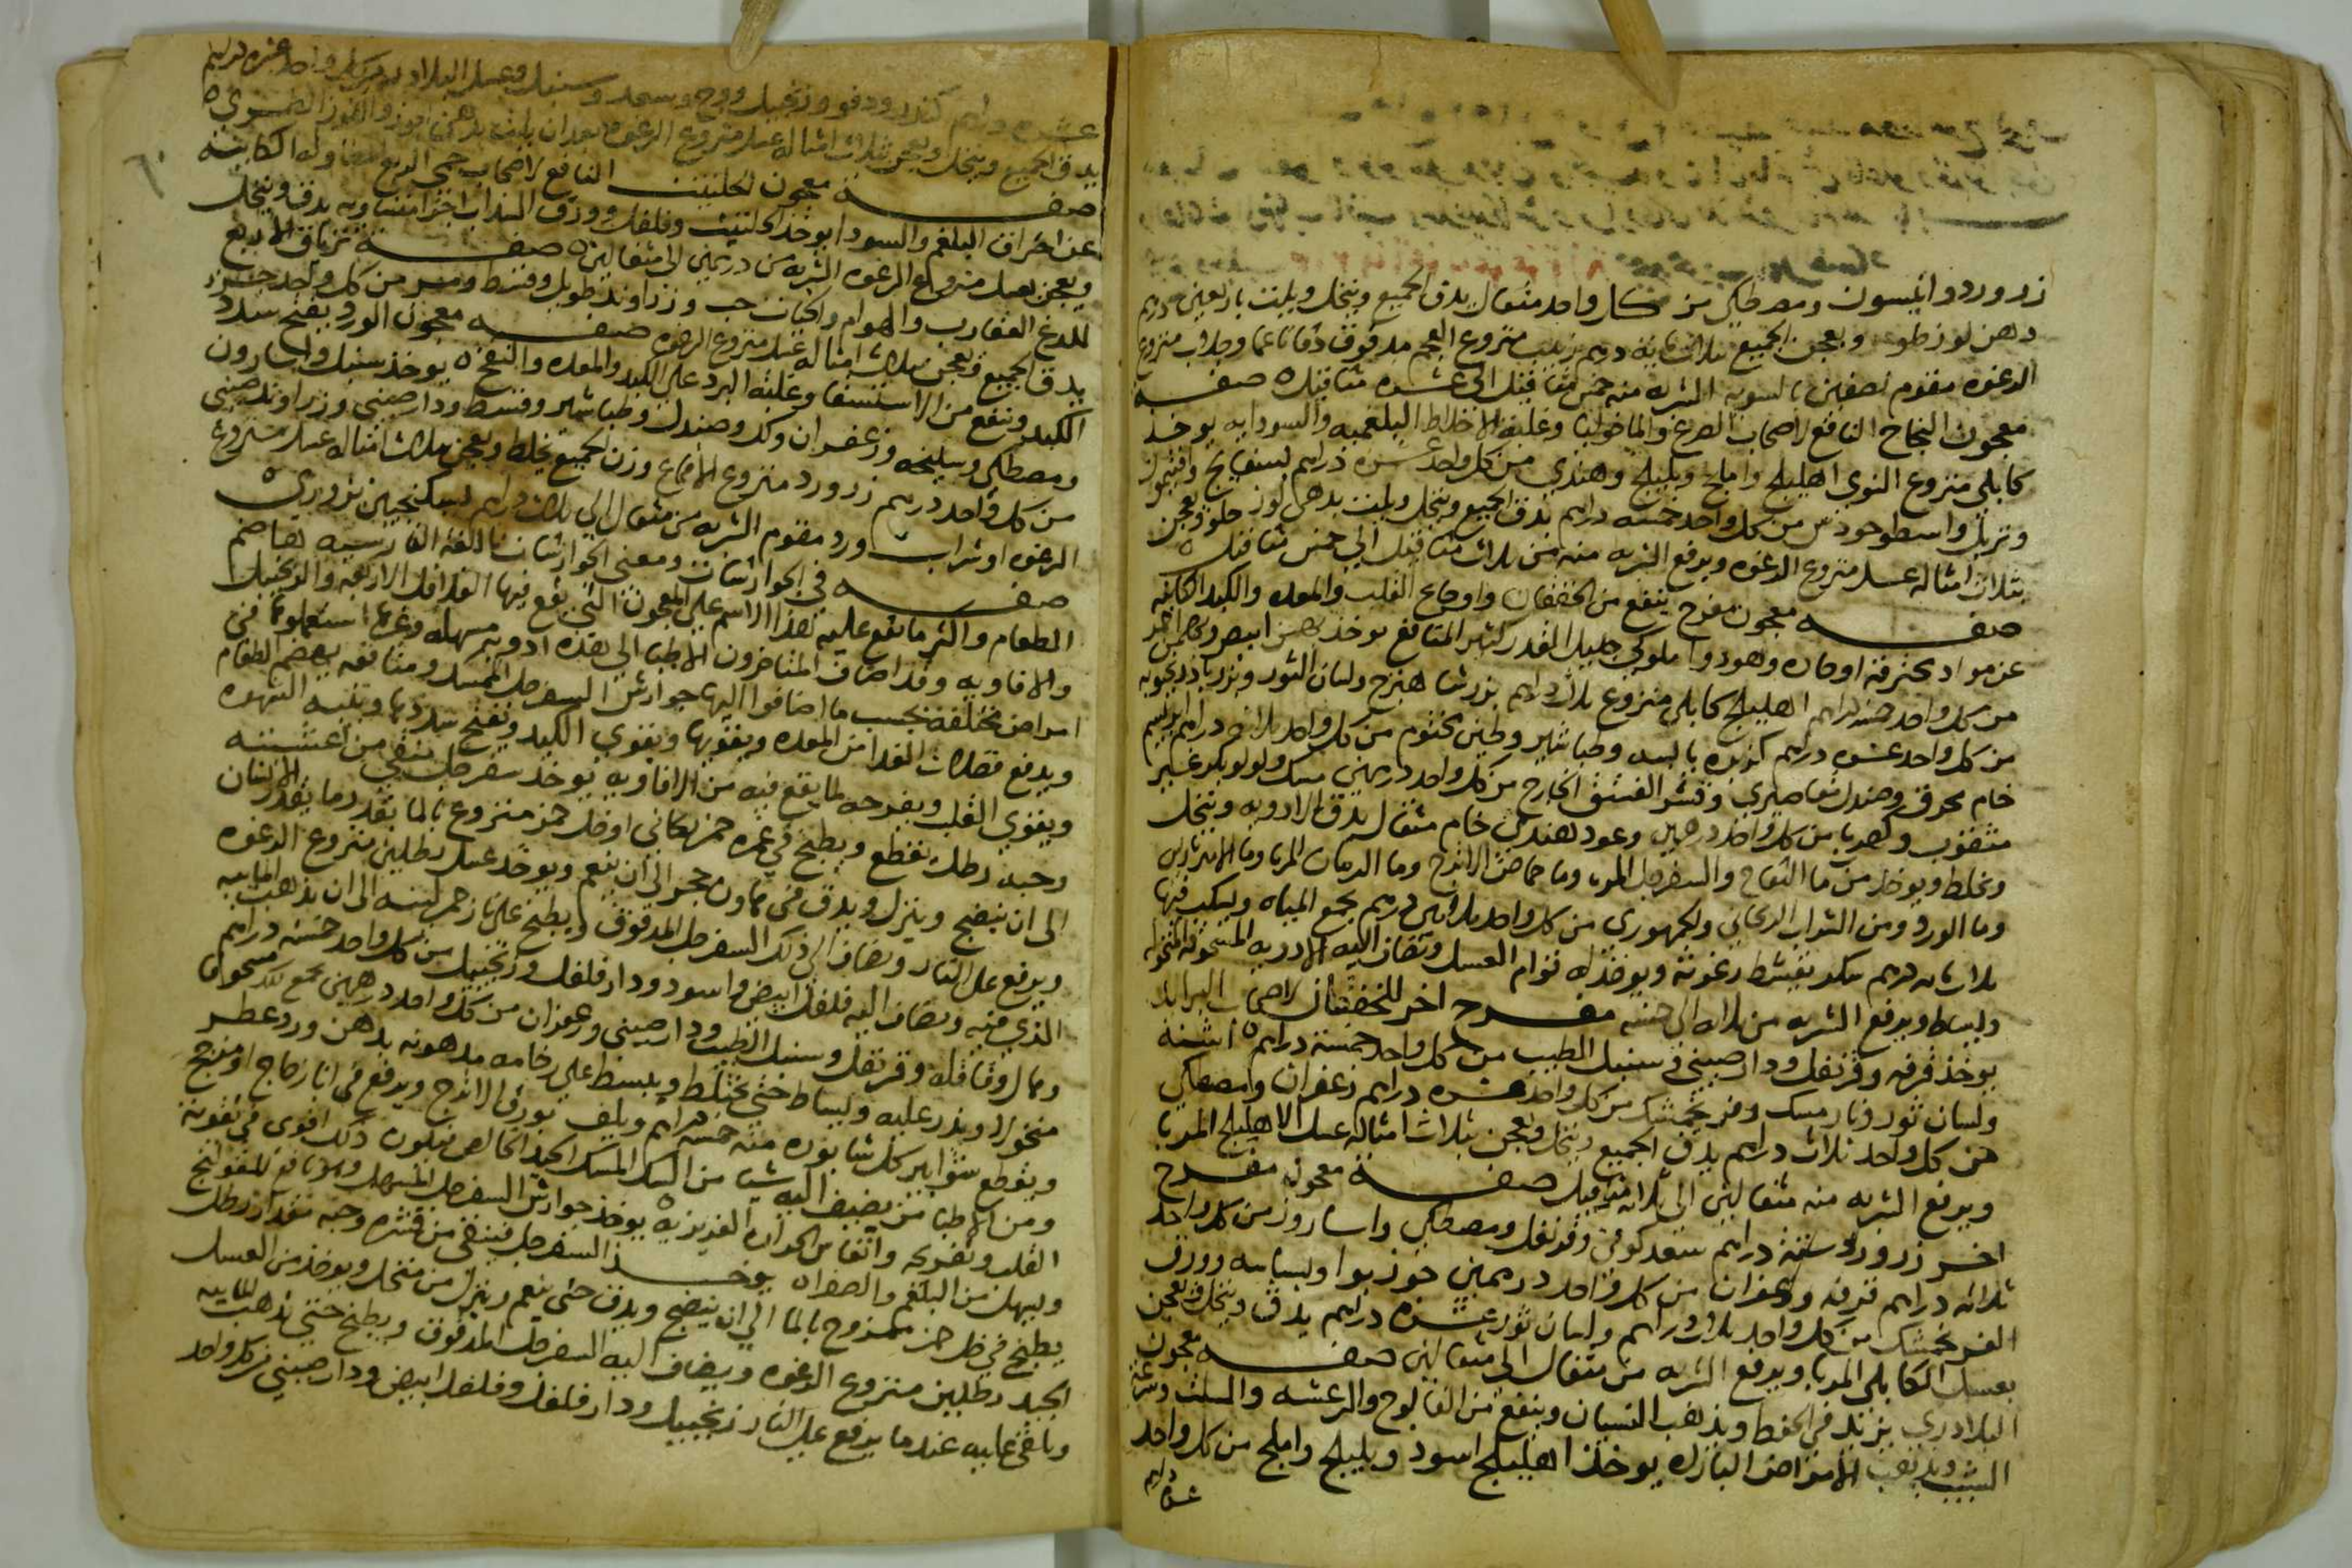 زرورد وانيسون ومصطكي من كل واحد مثقال يدق الجميع وينخل ويلت باربعين درهم
دهن لوز حلو ويعجن الجميع بثلاثمايه درهم زبيب منزوع العجم مدقوق دقا ناعما وجلاب منزوع
الرغوه مقوم نصفين بالسويه الشربه منه خمس مثاقيل الى عشره مثاقيل ه صفـــة
معجون النجاح النافع لاصحاب الصرع والماخوليا وغلبة الاخلاط البلغميه والسوداويه يوخذ
كابلي منزوع النوى اهليلج واملج وبليلج وهندي من كل واحد عشره دراهم بسفايج وافتيمون
وتربد واسطوخودس من كل واحد خمسه دراهم يدق الجميع وينخل ويلت بدهن لوز حلو ويعجن
بثلاث امثاله عسل منزوع الرغوه ويرفع الشربه منه من ثلاث مثاقيل الى خمس مثاقيل ه
صفـــه معجون مفرح ينفع من الخفقان واوجاع القلب والمعده والكبد الكاينه
عن مواد محترقه او حاره وهو دوا ملوكي جليل القدر كثير المنافع يوخذ بهمن ابيض وبهمن احمر
من كل واحد خمسه دراهم اهليلج كابلي منزوع ثلاث دراهم بزر شاهترج ولسان الثور وبزر بادرنجويه
من كل واحد عشره دراهم كزبره يابسه وطباشير وطين مختوم من كل واحد ثلاث دراهم ابريسم
خام محرق وصندل مقاصيري وقشر الفستق الخارج من كل واحد درهمين مسك ولولو بكر غير
مثقوب وكهربا من كل واحد درهمين وعود هندي خام مثقال يدق الادويه وتنخل
وتخلط ويوخذ من ما التفاح والسفرجل المز وما حماض الاترج وما الرمان المز وما الانبرباريس
وما الورد ومن الشراب الريحاني والجمهوري من كل واحد ثلاثين درهم تجمع المياه ويسكب فيها
ثلاثمايه درهم سكر تقشط رغوته ويوخذ له قوام العسل وتضاف اليه الادويه المسحوقه المنخوله
ويساط ويرفع الشربه من ثلاثه الى خمسه مفـــرح اخر للخفقان لاصحاب البرايد
يوخذ قرفه وقرنفل ودار صيني وسنبل الطيب من كل واحد خمسة دراهم ه اشنه
ولسان ثور ونار مسك وفرنجمشك من كل واحد عشره دراهم زعفران ومصطكي
من كل واحد ثلاث دراهم يدق الجميع وينخل ويعجن بثلاث امثاله عسل الاهليلج المربا
ويرفع الشربه منه مثقالين الى ثلاثة مثاقيل صفـــة معجون مفـــرح
اخـــر زرورد ستة دراهم سعد كوفي وقرنفل ومصطكي واسارون من كل واحد
ثلاثه دراهم قرفه وزعفران من كل واحد درهمين جوز بوا وبسباسه وورق
الفرنجمشك من كل واحد ثلاث دراهم ولسان ثور عشره دراهم يدق وينخل ويعجن
بعسل الكابلي المربا ويرفع الشربه من مثقال الى مثقالين صفـــه معجون
البلادري يزيد في الحفظ ويذهب النسيان وينفع من الفالج والرعشه والسلس وسرعة
الشيب ويذهب الامراض البارده يوخذ اهليلج اسود وبليلج واملج من كل واحد
عشره دراهم
عشره دراهم كندر ودفو وزنجبيل ووج وسعد وسنبل وعسل البلادر من كل واحد عشره دراهم
يدق الجميع وينخل ويعجن بثلاث امثاله عسل منزوع الرغوه بعد ان يلت بدهن الجوز واللوز الطري ه
صفـــة معجون الحلتيت النافع لاصحاب حمى الربع المتطاوله الكاينه
عن احتراق البلغم والسودا يوخذ الحلتيت وفلفل وورق السذاب اجزا متساويه يدق وينخل
ويعجن بعسل منزوع الرغوه الشربه من درهمين الى مثقالين ه صفـــة ترياق الاربع
للدغ العقارب والهوام والحيات حب وزراوند طويل وقسط ومر من كل واحد جزء
يدق الجميع ويعجن بثلاث امثاله عسل منزوع الرغوه صفـــه معجون الورد يفتح سدد
الكبد وينفع من الاستسقا وغلبة البرد على الكبد والمعده والنفخ ه يوخذ سنبل واسارون
ومصطكي وسليخه وزعفران ولك وصندل وطباشير وقسط ودار صيني وزراوند صيني
من كل واحد درهم زرورد منزوع الاقماع وزن الجميع يخلط ويعجن بثلاث امثاله عسل منزوع
الرغوه او شراب ورد مقوم الشربه من مثقال الى ثلاث دراهم بسكنجبين بزوري ه
صفـــه في الجوارشات ومعنى الجوارشات باللغه الفارسيه الهاضم
الطعام واكثر ما تقع عليه هذا الاسم على المعجون التي يقع فيها الفلافل الاربعه والزنجبيل
والافاويه وقد اضاف المتاخرون الاطبا الى هذه ادويه مسهله وغيرها استعملوها في
امراض مختلفه بحسب ما اضافوا اليها جوارش السفرجل الممسك ومنافعه يهضم الطعام
ويدفع فضلات الغدا من المعده ويقويها ويقوي الكبد ويفتح سددها وينبه الشهوه
ويقوي القلب ويفرحه لما يقع فيه من الافاويه يوخذ سفرجل منقى من اغشيته
وحبه رطل يقطع ويطبخ في غمره خمر ريحاني او خل خمر ممزوج بالما بقدر ما يغمره الانسان
الى ان ينضج وينزل ويدق في هاون حجر الى ان ينعم ويوخذ عسل رطلين منزوع الرغوه
ويرفع على النار ويضاف الى ذلك السفرجل المدقوق ويطبخ على نار جمر لينه الى ان يذهب المايه
الذي فيه ويضاف اليه فلفل ابيض واسود ودار فلفل وزنجبيل من كل واحد خمسه دراهم
وهال وقاقله وقرنفل وسنبل الطيب ودار صيني وزعفران من كل واحد درهمين يجمع الكل مسحوقا
منخولا ويذر عليه ويساط حتى يختلط ويبسط على رخامه مدهونه بدهن ورد عطر
ويقطع شوابير كل شابوره منه خمسه دراهم ويلف بورق الاترج ويرفع في انا زجاج او مزجج
ومن الاطبا من يضيف اليه شيا من السك المسك الجيد الخالص فيكون ذلك اقوى في تقوية
القلب وتفريحه وانعاش الحراره الغريزيه ه يوخذ جوارش السفرجل المسهل وهو نافع للقولنج
ويسهل من البلغم والصفرا ه يوخـــذ السفرجل فينقى من قشره وحبه مقدار رطل
يطبخ في خل خمر ممزوج بالما الى ان ينضج ويدق حتى ينعم وينزل من منخل ويوخذ من العسل
الجيد رطلين منزوع الرغوه ويضاف اليه السفرجل المدقوق ويطبخ حتى تذهب المايه
ويلقى عليه عندما يرفع على النار زنجبيل ودار فلفل وفلفل ابيض ودار صيني من كل واحد